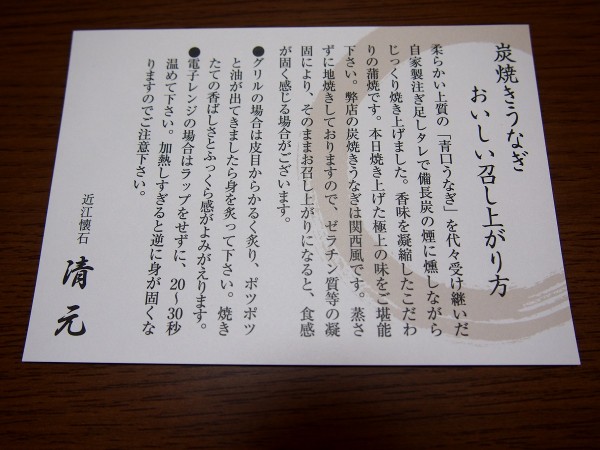 炭焼きうなぎ
おいしい召し上がり方
柔らかい上質の「青口うなぎ」を代々受け継いだ
自家製注ぎ足しタレで備長炭の煙に燻しながら
じっくり焼き上げました。香味を凝縮したこだわ
りの蒲焼です。本日焼き上げた極上の味をご堪能
下さい。弊店の炭焼きうなぎは関西風です。蒸さ
ずに地焼きしておりますので、ゼラチン質等の凝
固により、そのままお召し上がりになると、食感
が固く感じる場合がございます。
●グリルの場合は皮目からかるく炙り、ポツポツ
と油が出てきましたら身を炙って下さい。焼き
たての香ばしさとふっくら感がよみがえります。
●電子レンジの場合はラップをせずに、20～30秒
温めて下さい。加熱しすぎると逆に身が固くな
りますのでご注意下さい。
近江懐石
清元